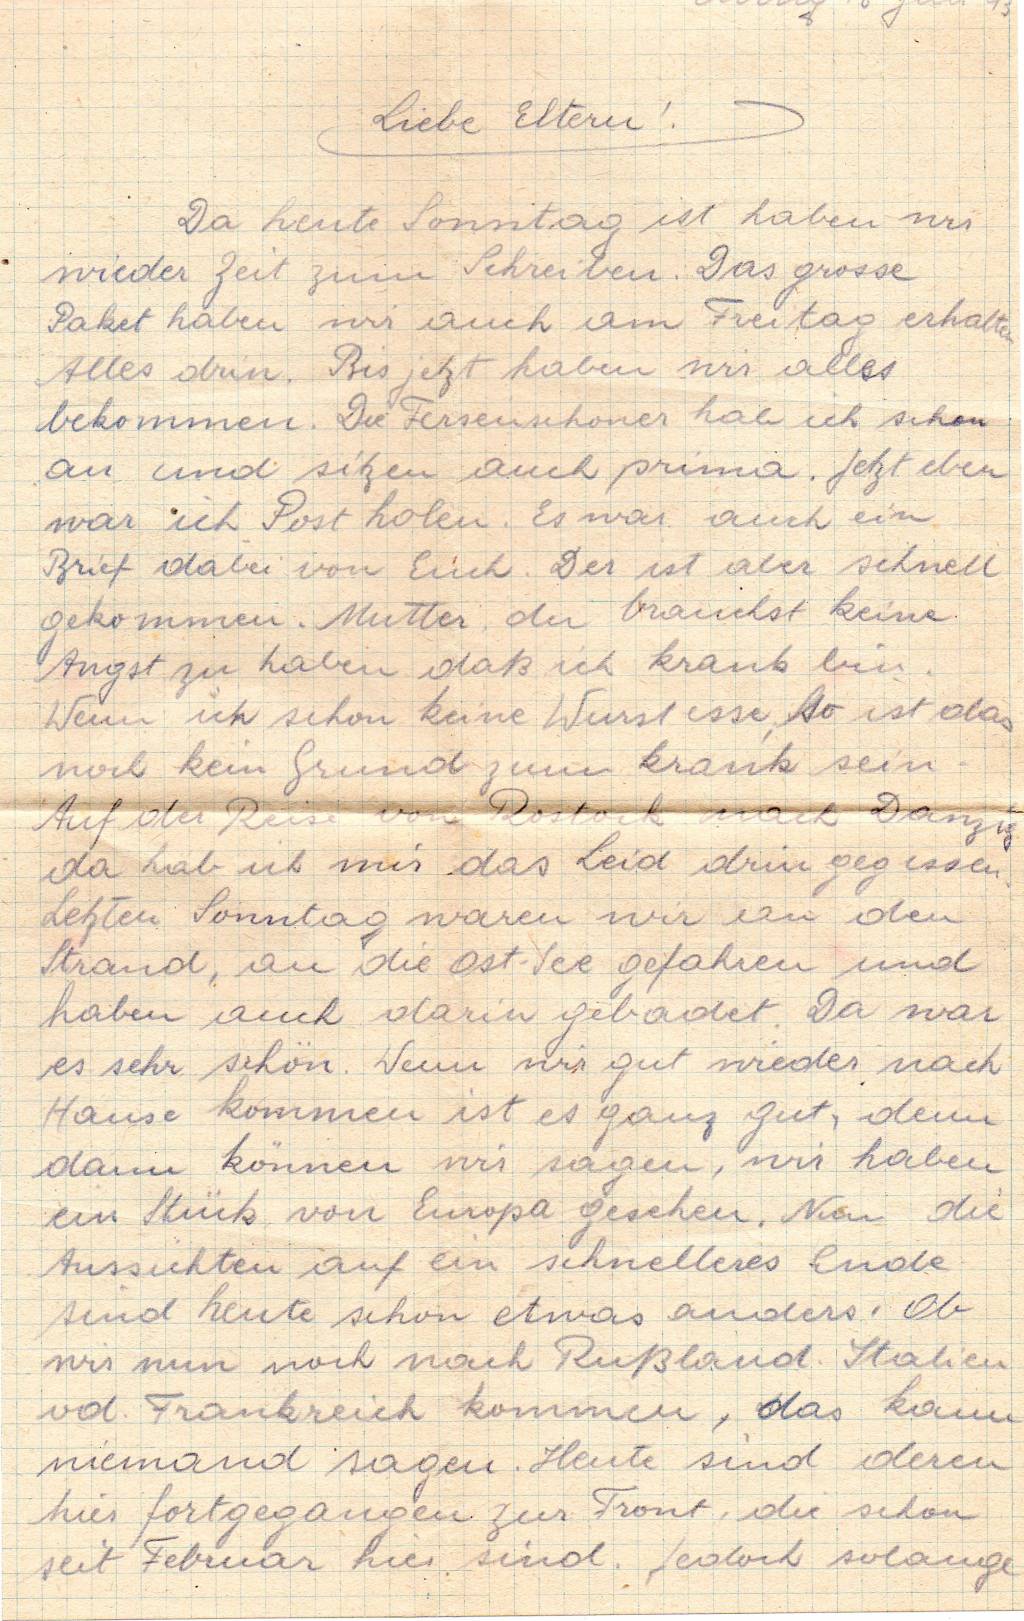 Juli 43
Liebe Eltern!
Da heute Sonntag ist haben wir
wieder Zeit zum Schreiben. Das grosse
Paket haben wir auch am Freitag erhalten
Alles drin. Bis jetzt haben wir alles
bekommen. Die Fersenschoner hab ich schon
an und sitzen auch prima. Jetzt eben
war ich Post holen. Es war auch ein
Brief dabei von Euch. Der ist aber schnell
gekommen. Mutter, du brauchst keine
Angst zu haben daß ich krank bin.
Wenn ich schon keine Wurst esse, so ist das
noch kein Grund zum krank sein.
Auf der Reise von Rostock nach Danzig
da hab ich mir das Leid drin gegessen.
Letzten Sonntag waren wir an den
Strand, an die Ost-See gefahren und
haben auch darin gebadet. Da war
es sehr schön. Wenn wir gut wieder nach
Hause kommen ist es ganz gut, denn
dann können wir sagen, wir haben
ein Stück von Europa gesehen. Nun die
Aussichten auf ein schnelleres Ende
sind heute schon etwas anders. Ob
wir nun noch nach Rußland. Italien
od. Frankreich kommen, das kann
niemand sagen. Heute sind deren
hier fortgegangen zur Front, die schon
seit Februar hier sind. Jedoch solange